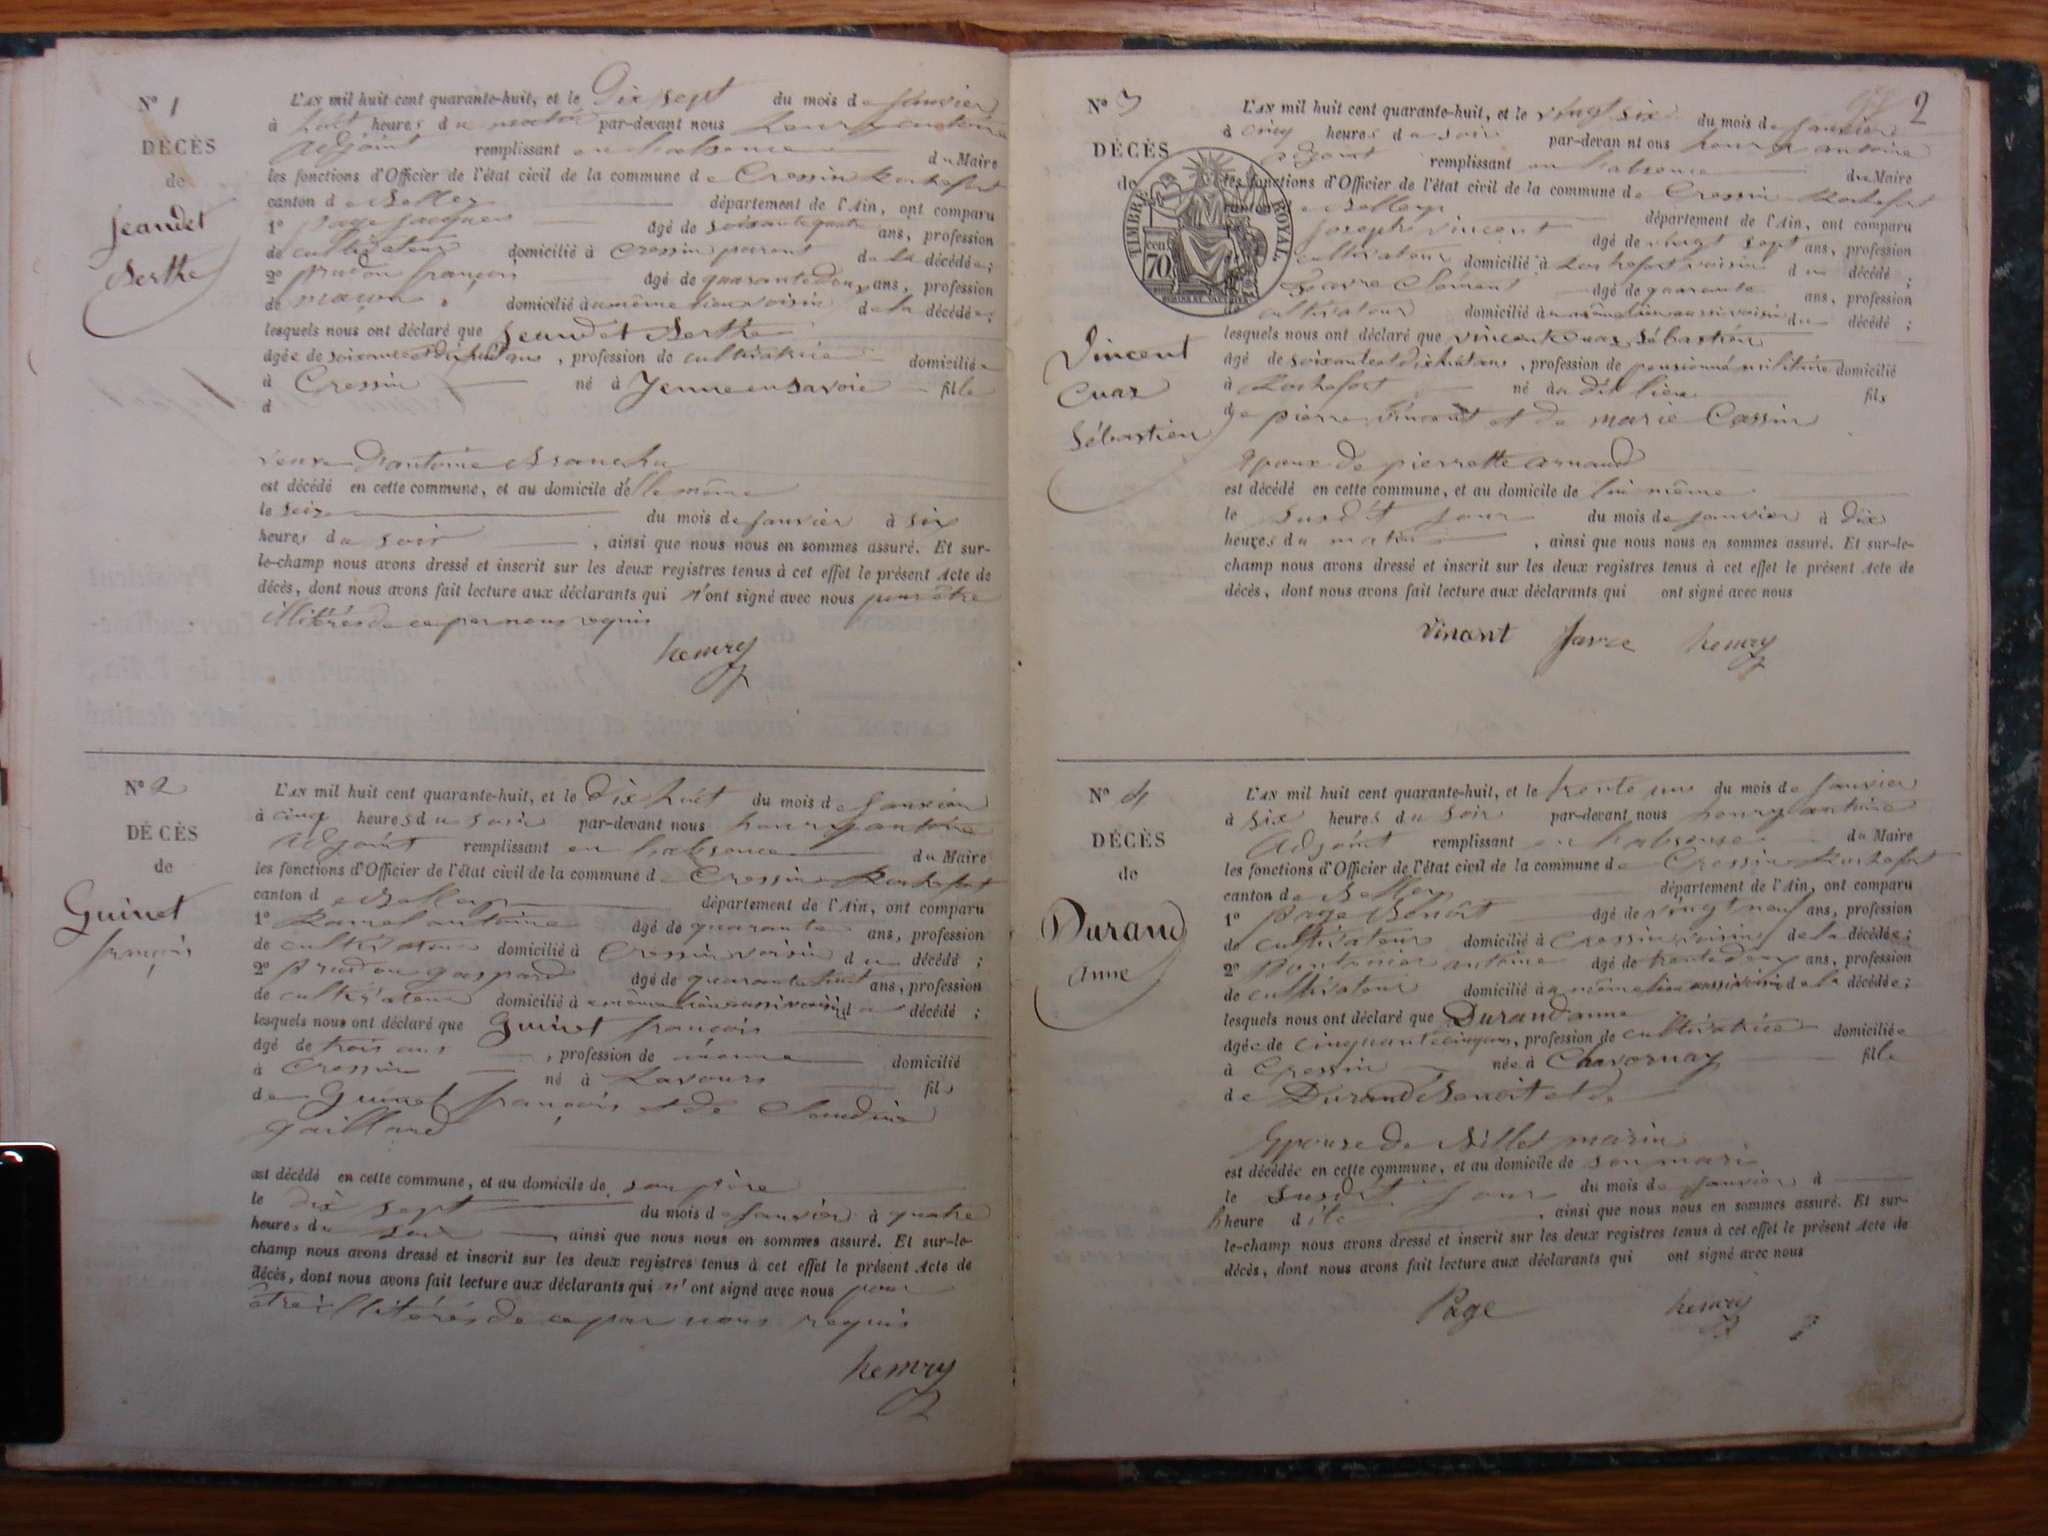 N° 1
DÉCÈS
de
Jeandet
Berthe
L'AN mil huit cent quarante-huit, et le Dix sept du mois de janvier
à huit heures du matin par-devant nous henry antoine
Adjoint remplissant en l'absence du Maire
les fonctions d'Officier de l'état civil de la commune de Cressin Rochefort
canton de Belley département de l'Ain, ont comparu
1° page jacques âgé de soixante quatre ans, profession
de cultivateur domicilié à Cressin parent de la décédée;
2° prudon françois âgé de quarante deux ans, profession
de maçon domicilié au même lieu voisin de la décédée;
lesquels nous ont déclaré que Jeandet Berthe
âgée de soixante et dix huit ans, profession de cultivatrice domiciliée
à Cressin né à Yenne en Savoie fille
d
veuve d'antoine
est décédé en cette commune, et au domicile d'elle même
le seize du mois de janvier à six
heures du soir, ainsi que nous nous en sommes assuré. Et sur-
le-champ nous avons dressé et inscrit sur les deux registres tenus à cet effet le présent Acte de
décès, dont nous avons fait lecture aux déclarants qui n'ont signé avec nous pour être
illitérés de ce par nous requis
henry
N° 2
DÉCÈS
de
Guinet
françois
L'AN mil huit cent quarante-huit, et le dix huit du mois de janvier
à cinq heures du soir par-devant nous henry antoine
Adjoint remplissant en l'absence du Maire
les fonctions d'Officier de l'état civil de la commune de Cressin Rochefort
canton de Belley département de l'Ain, ont comparu
1° antoine âgé de quarante ans, profession
de cultivateur domicilié à Cressin voisin du décédé;
2° prudon gaspard âgé de quarante huit ans, profession
de cultivateur domicilié à même lieu aussi voisin du décédé;
lesquels nous ont déclaré que Guinet françois
âgé de trois ans, profession de domicilié
à Cressin né à Lavours fils
de Guinet françois et de Claudine
Gaillard
est décédé en cette commune, et au domicile de son père
le dix sept du mois de janvier à quatre
heures du soir ainsi que nous nous en sommes assuré. Et sur-le-
champ nous avons dressé et inscrit sur les deux registres tenus à cet effet le présent Acte de
décès, dont nous avons fait lecture aux déclarants qui n'ont signé avec nous pour
être illitérés de ce par nous requis
henry
2
N° 3
DÉCÈS
de
Vincent
Cuaz
Sébastien
TIMBRE ROYAL
cen
70
L'AN mil huit cent quarante-huit, et le vingt six du mois de janvier
à cinq heures du soir par-devant nous henry antoine
adjoint remplissant en l'absence du Maire
les fonctions d'Officier de l'état civil de la commune de Cressin Rochefort
canton de Belley département de l'Ain, ont comparu
joseph vincent âgé de vingt sept ans, profession
cultivateur domicilié à Rochefort voisin du décédé;
Clément âgé de quarante ans, profession
de cultivateur domicilié au même lieu aussi voisin du décédé;
lesquels nous ont déclaré que vincent Cuaz Sébastien
âgé de soixante et dix huit ans, profession de pensionné militaire domicilié
à Rochefort né au dit lieu fils
de pierre vincent et de marie Cassin
Epoux de pierrette arnaud
est décédé en cette commune, et au domicile de lui même
le susdit jour du mois de janvier à dix
heures du matin, ainsi que nous nous en sommes assuré. Et sur-le-
champ nous avons dressé et inscrit sur les deux registres tenus à cet effet le présent Acte de
décès, dont nous avons fait lecture aux déclarants qui ont signé avec nous
Vinant Favre henry
N° 4
DÉCÈS
de
Durand
anne
L'AN mil huit cent quarante-huit, et le trente un du mois de janvier
à six heures du soir par-devant nous henry antoine
Adjoint remplissant en l'absence du Maire
les fonctions d'Officier de l'état civil de la commune de Cressin Rochefort
canton de Belley département de l'Ain, ont comparu
1° page Benoît âgé de vingt neuf ans, profession
de cultivateur domicilié à Cressin voisin de la décédée;
2° antoine âgé de trente deux ans, profession
de cultivateur domicilié au même lieu aussi voisin de la décédée;
lesquels nous ont déclaré que Durand anne
âgée de cinquante cinq ans, profession de cultivatrice domiciliée
à Cressin née à Chavornay fille
de Durand Benoit et de
Epouse de Billet marin
est décédée en cette commune, et au domicile de son mari
le susdit jour du mois de janvier à
heure dite, ainsi que nous nous en sommes assuré. Et sur-
le-champ nous avons dressé et inscrit sur les deux registres tenus à cet effet le présent Acte de
décès, dont nous avons fait lecture aux déclarants qui ont signé avec nous
Page henry